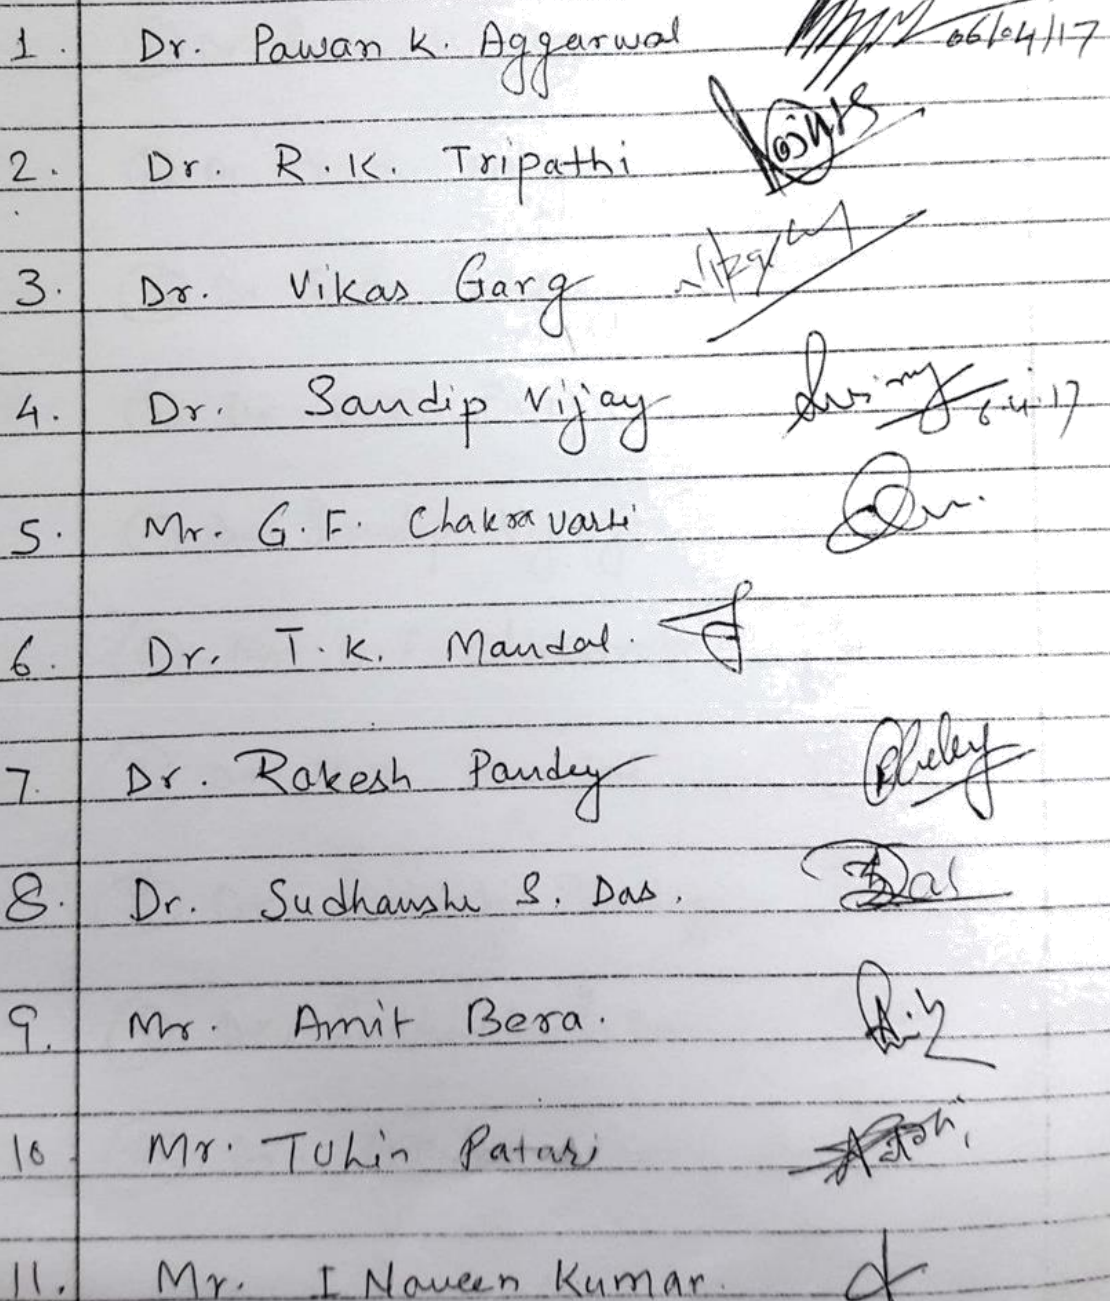 1. Dr. Pawan K. Aggarwal 06/04/17
2. Dr. R.K. Tripathi
3. Dr. Vikas Garg
4. Dr. Sandip Vijay 6.4.17
5. Mr. G.F. Chakravarti
6. Dr. T.K. Mandal.
7. Dr. Rakesh Pandey
8. Dr. Sudhanshu S. Das.
9. Mr. Amit Bera.
10. Mr. Tuhin Patari
11. Mr. I Naveen Kumar.